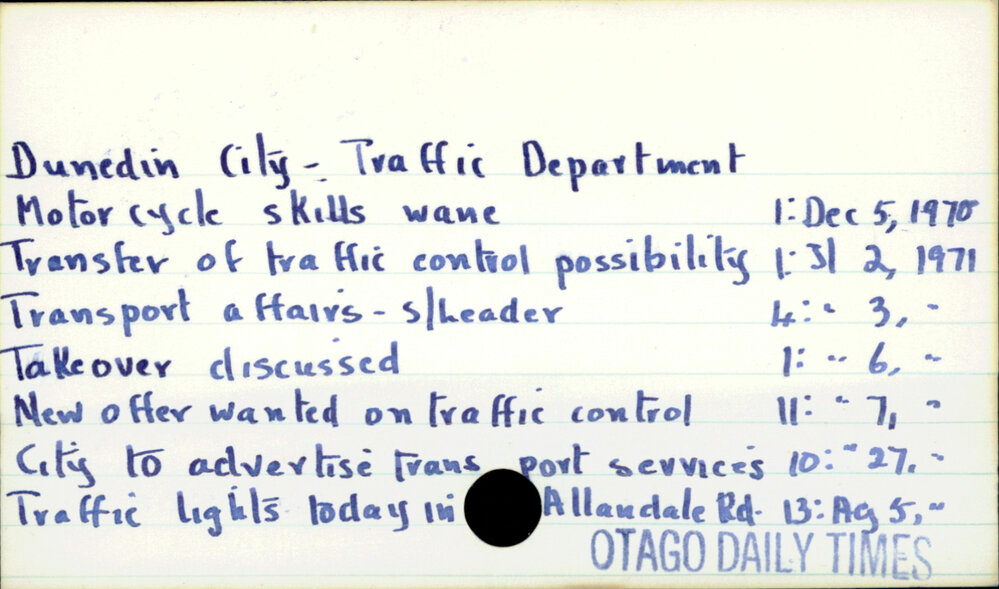 Dunedin City - Traffic Department
Motor cycle skills wane 1: Dec 5, 1970
Transfer of traffic control possibility 1: Jl 2, 1971
Transport affairs - s/header 4: " 3, "
Takeover discussed 1: " 6, "
New offer wanted on traffic control 11: " 7, "
City to advertise transport services 10: " 27, "
Traffic lights today in Allandale Rd. 13: Ag 5, "
OTAGO DAILY TIMES